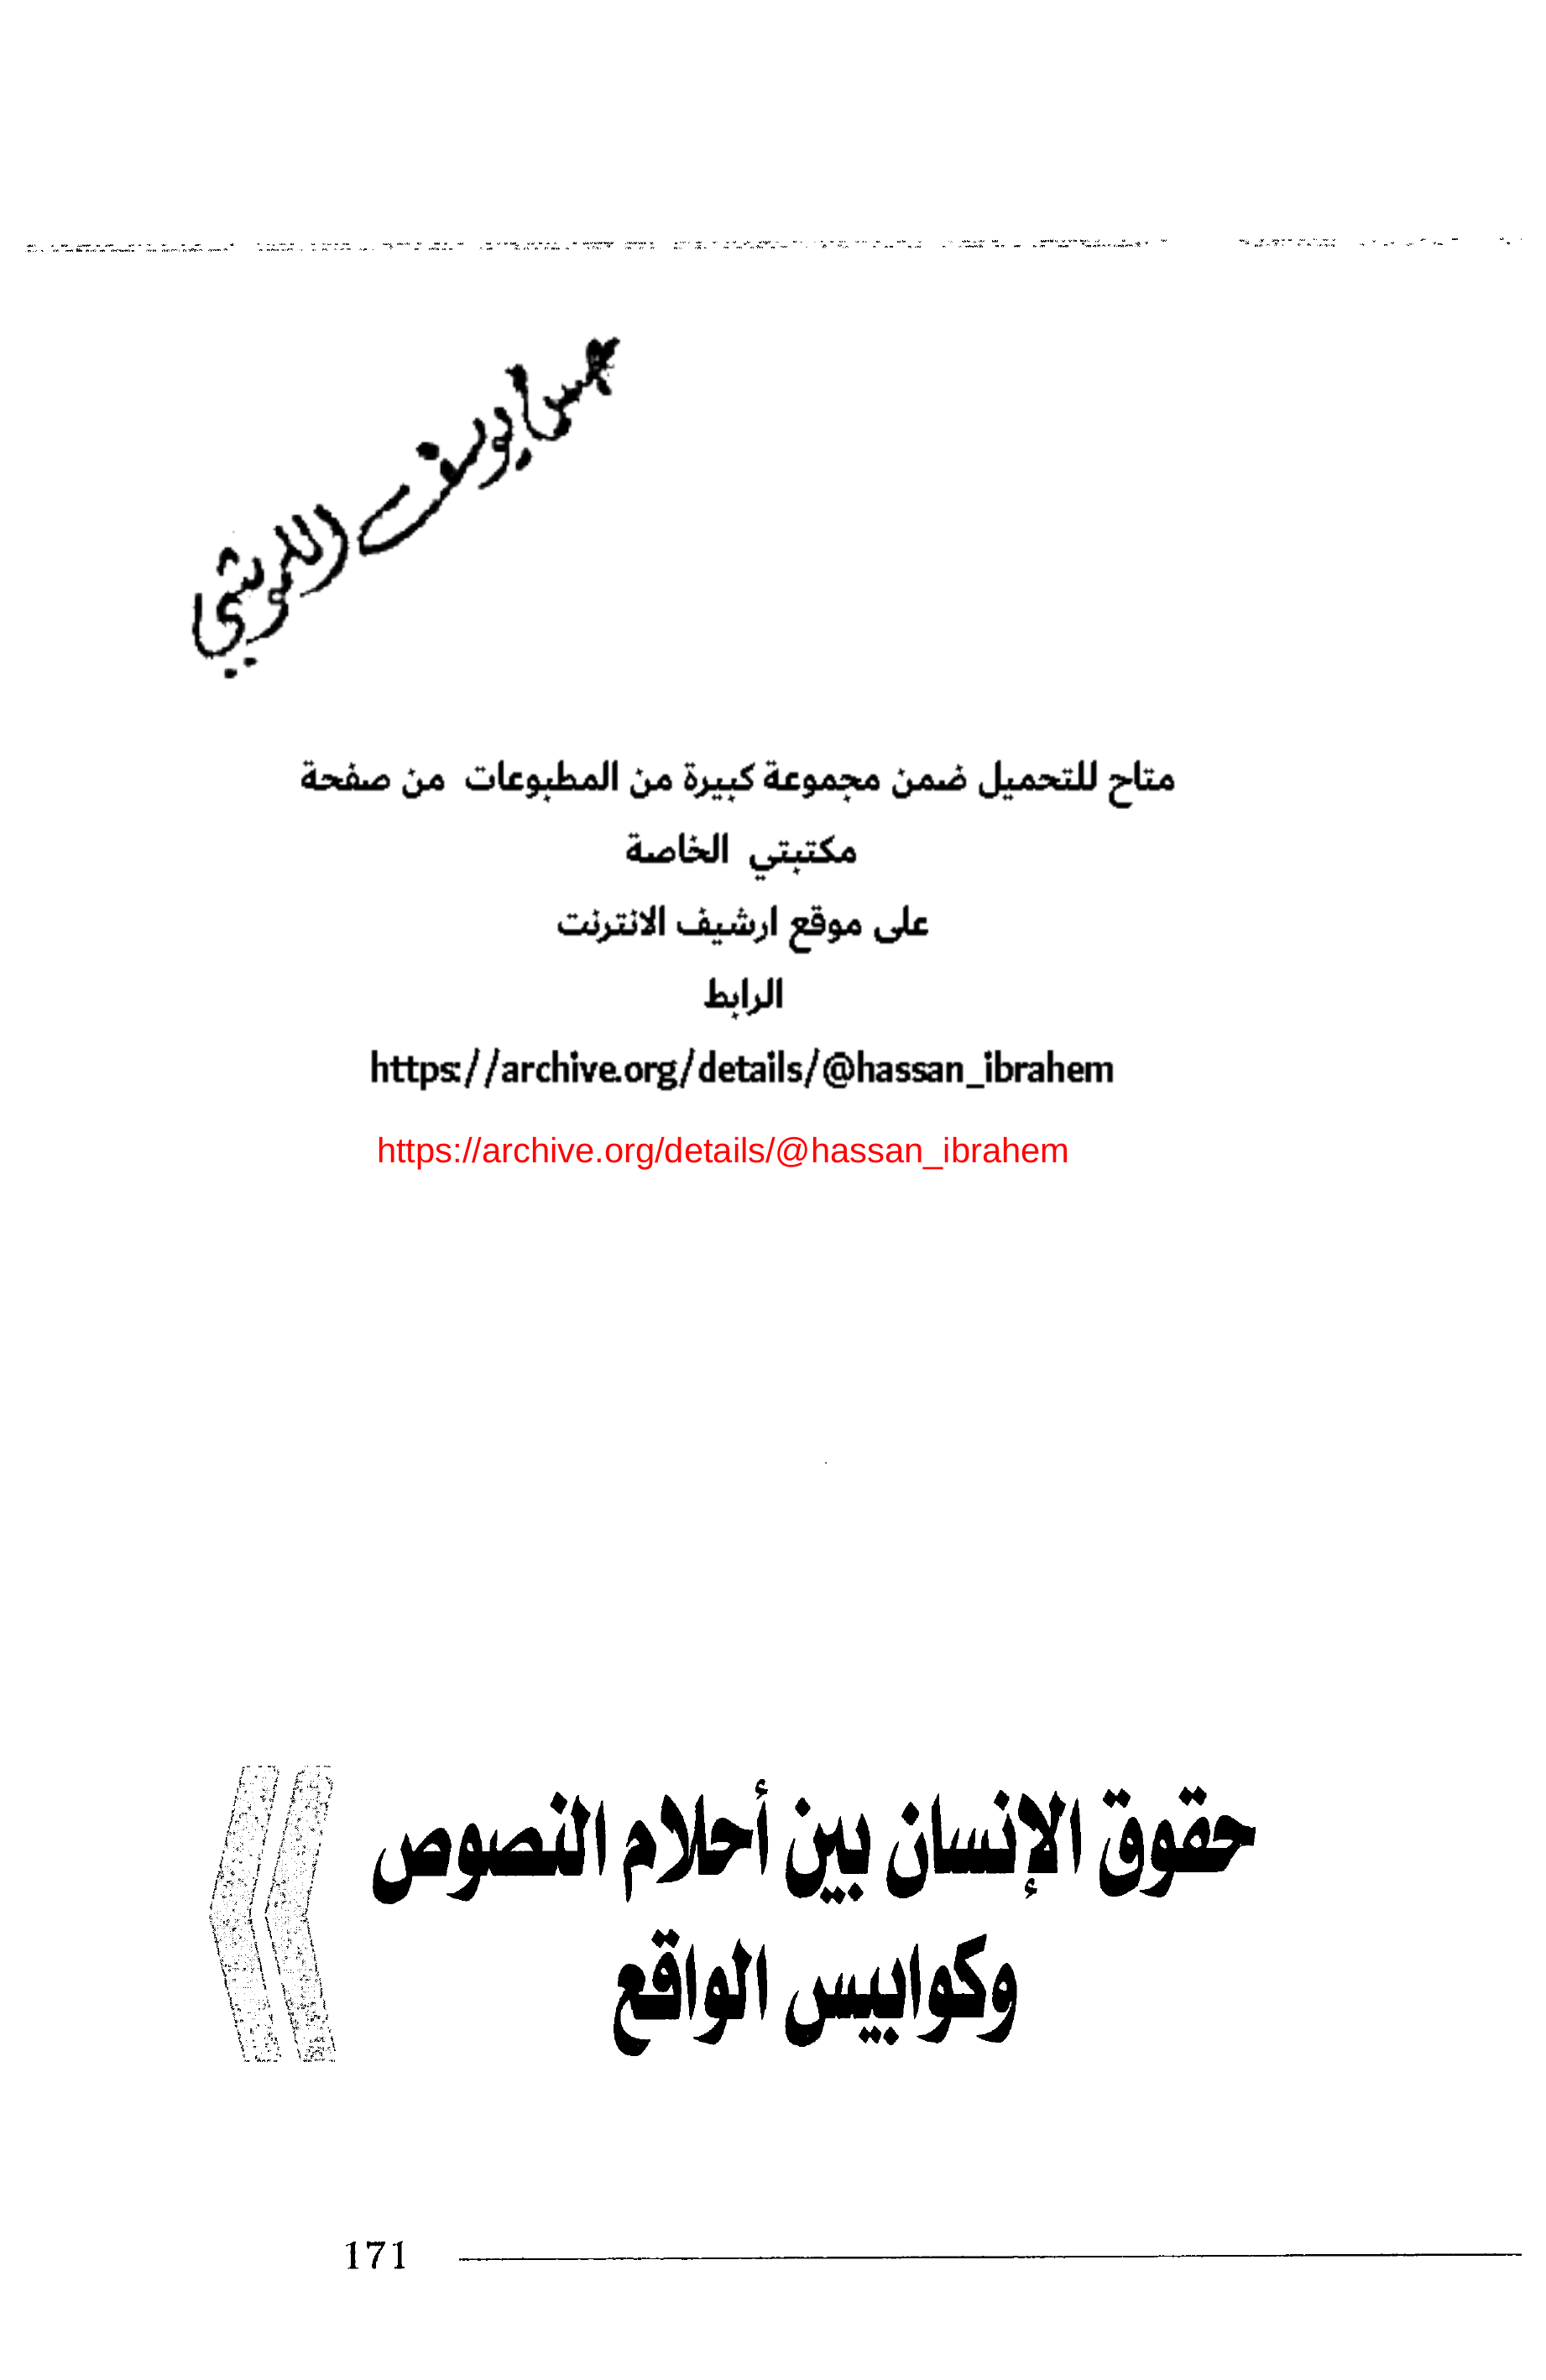 متاح للتحميل ضمن مجموعة كبيرة من المطبوعات من صفحة
مكتبتي الخاصة
على موقع ارشيف الانترنت
الرابط
https://archive.org/details/@hassan_ibrahem
https://archive.org/details/@hassan_ibrahem
حقوق الإنسان بين أحلام النصوص
وكوابيس الواقع
171